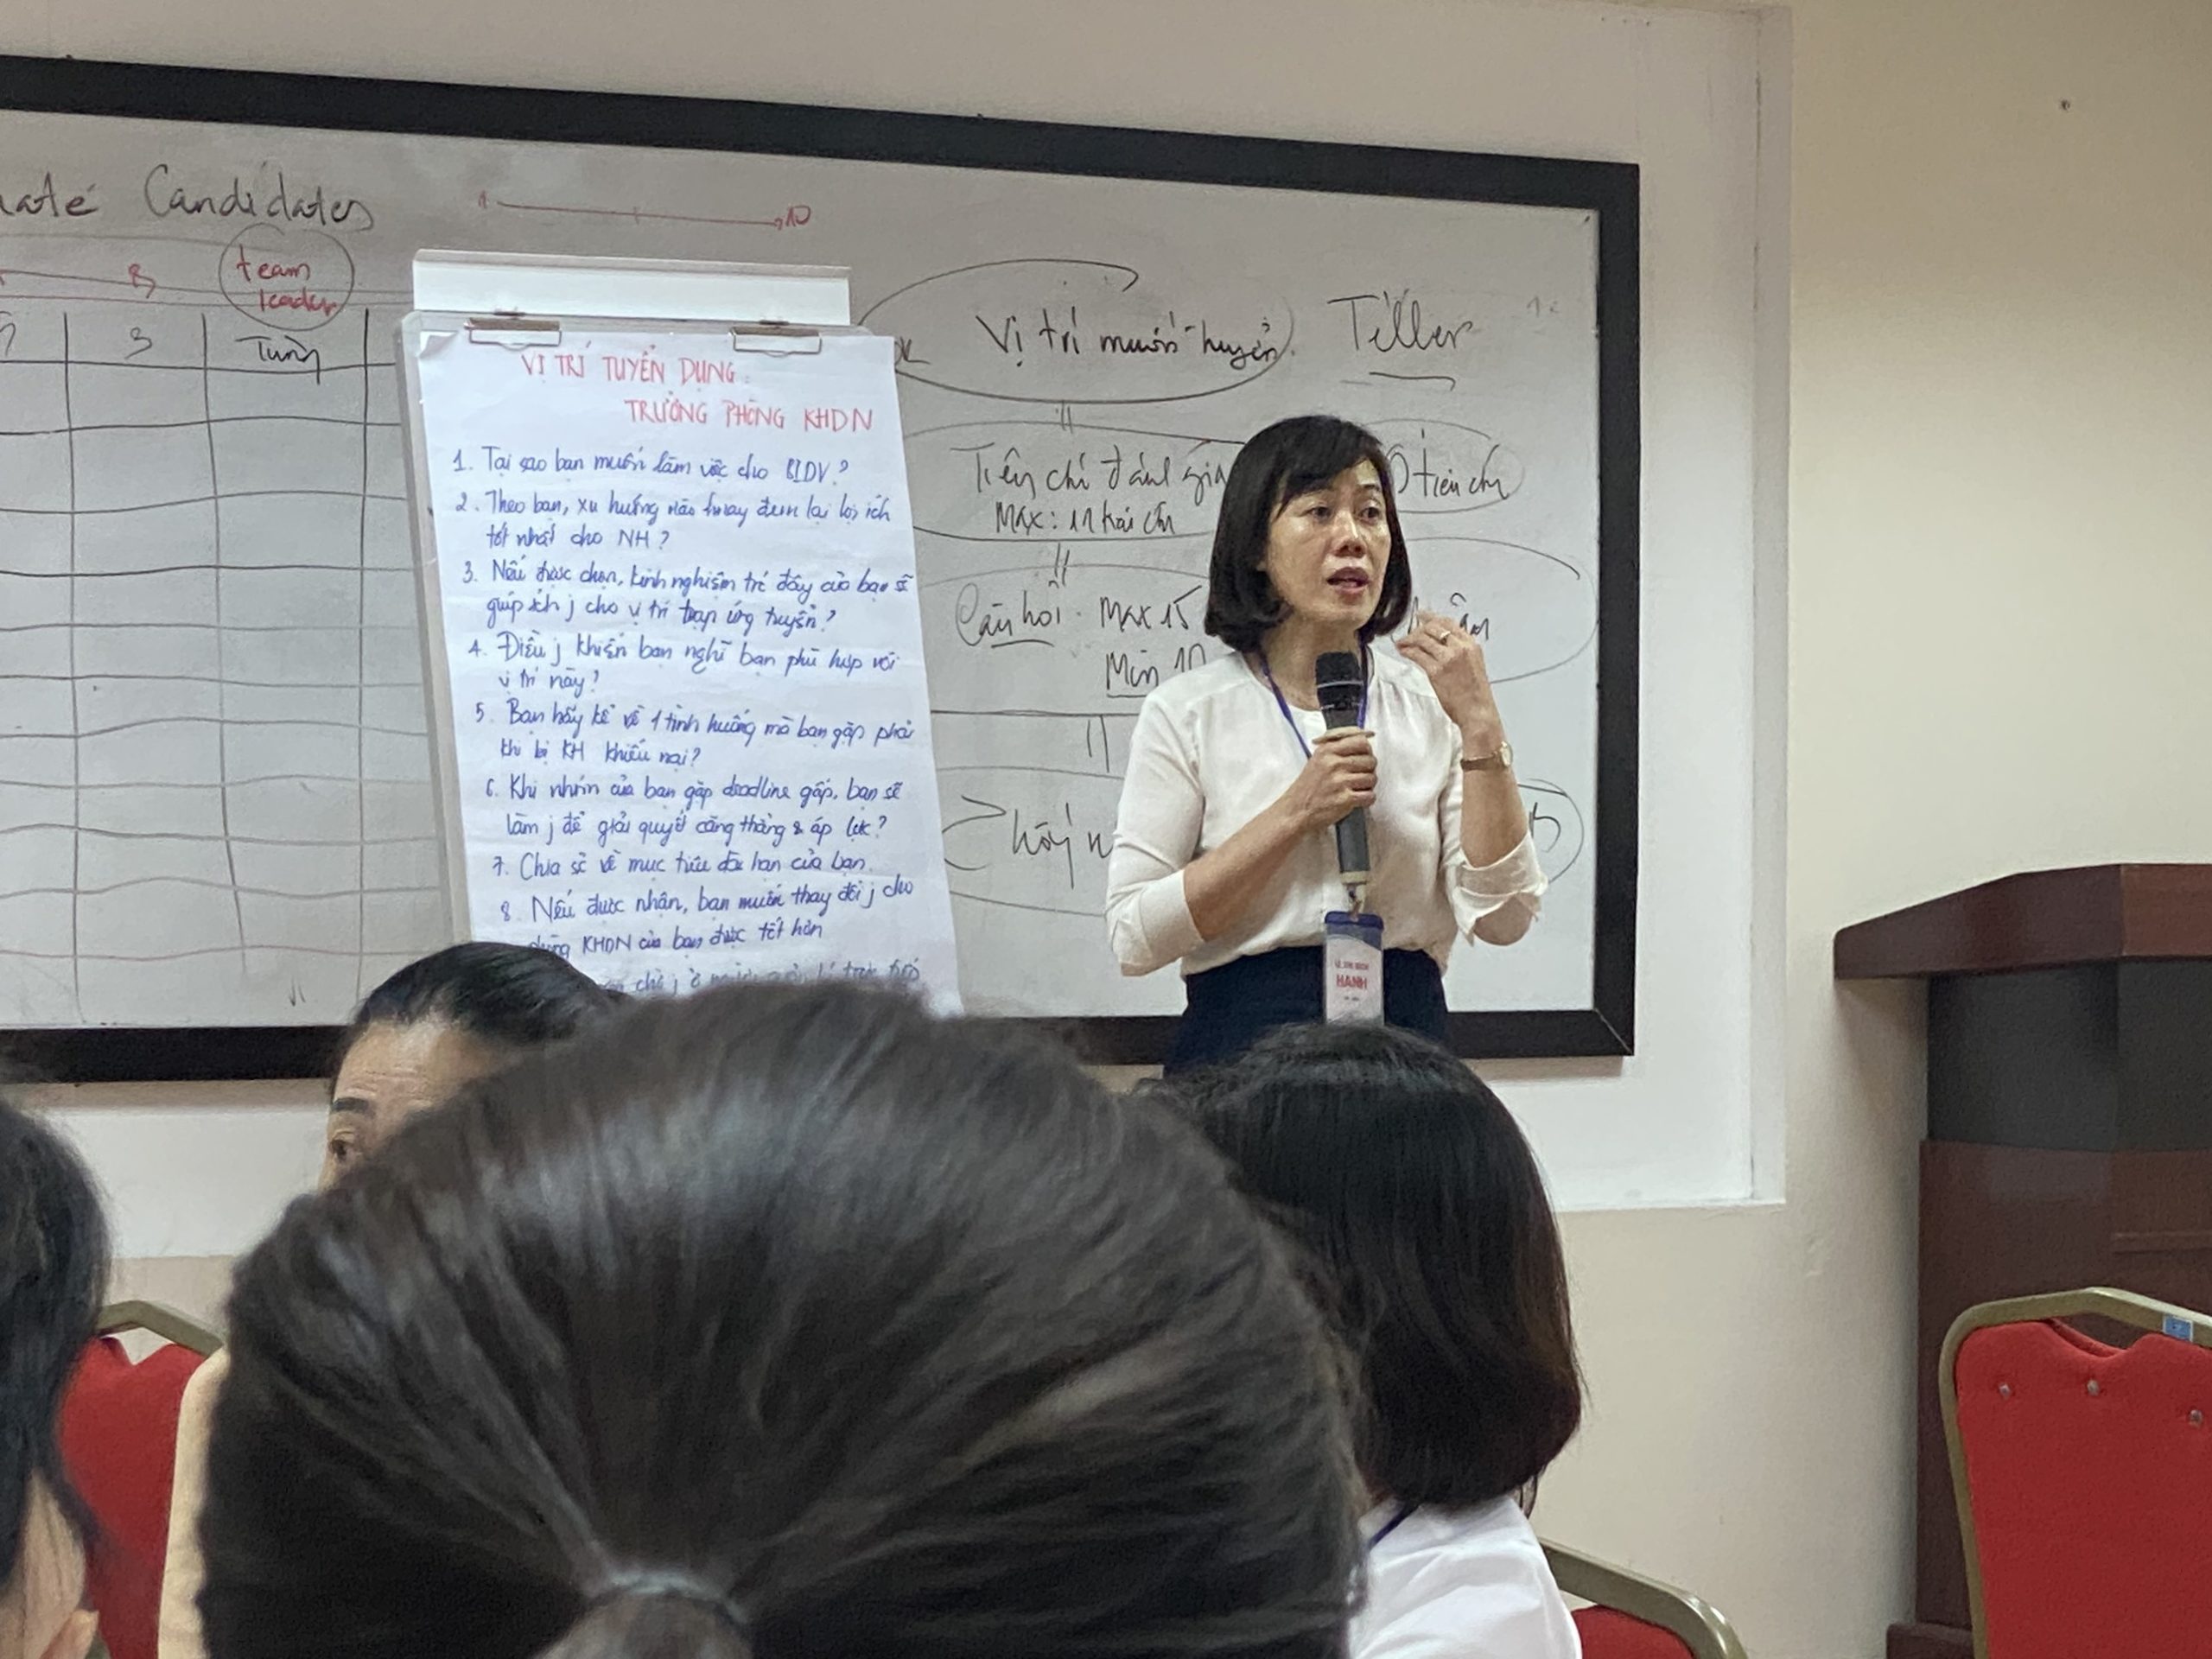 Candidates
1
10
team
leader
3
Tùng
VỊ TRÍ TUYỂN DỤNG:
TRƯỞNG PHÒNG KHDN
1. Tại sao bạn muốn làm việc cho BIDV?
2. Theo bạn, xu hướng nào hnay đem lại lợi ích
tốt nhất cho NH?
3. Nếu được chọn, kinh nghiệm trc đây của bạn sẽ
giúp ích j cho vị trí bạn ứng tuyển?
4. Điều j khiến bạn nghĩ bạn phù hợp với
vị trí này?
5. Bạn hãy kể về 1 tình huống mà bạn gặp phải
khi bị KH khiếu nại?
6. Khi nhóm của bạn gặp deadline gấp, bạn sẽ
làm j để giải quyết căng thẳng & áp lực?
7. Chia sẻ về mục tiêu dài hạn của bạn.
8. Nếu được nhận, bạn muốn thay đổi j cho
KHDN của bạn được tốt hơn
Vị trí muốn tuyển. Teller
Tiêu chí đánh giá
tiêu chí
MAX:
Câu hỏi. MAX 15
Min 10
HẠNH